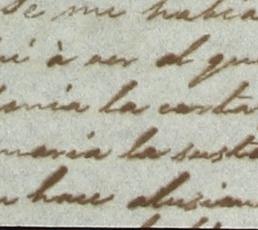 Se me habia
à ver al que
la carta
maria la susta
hace alusion